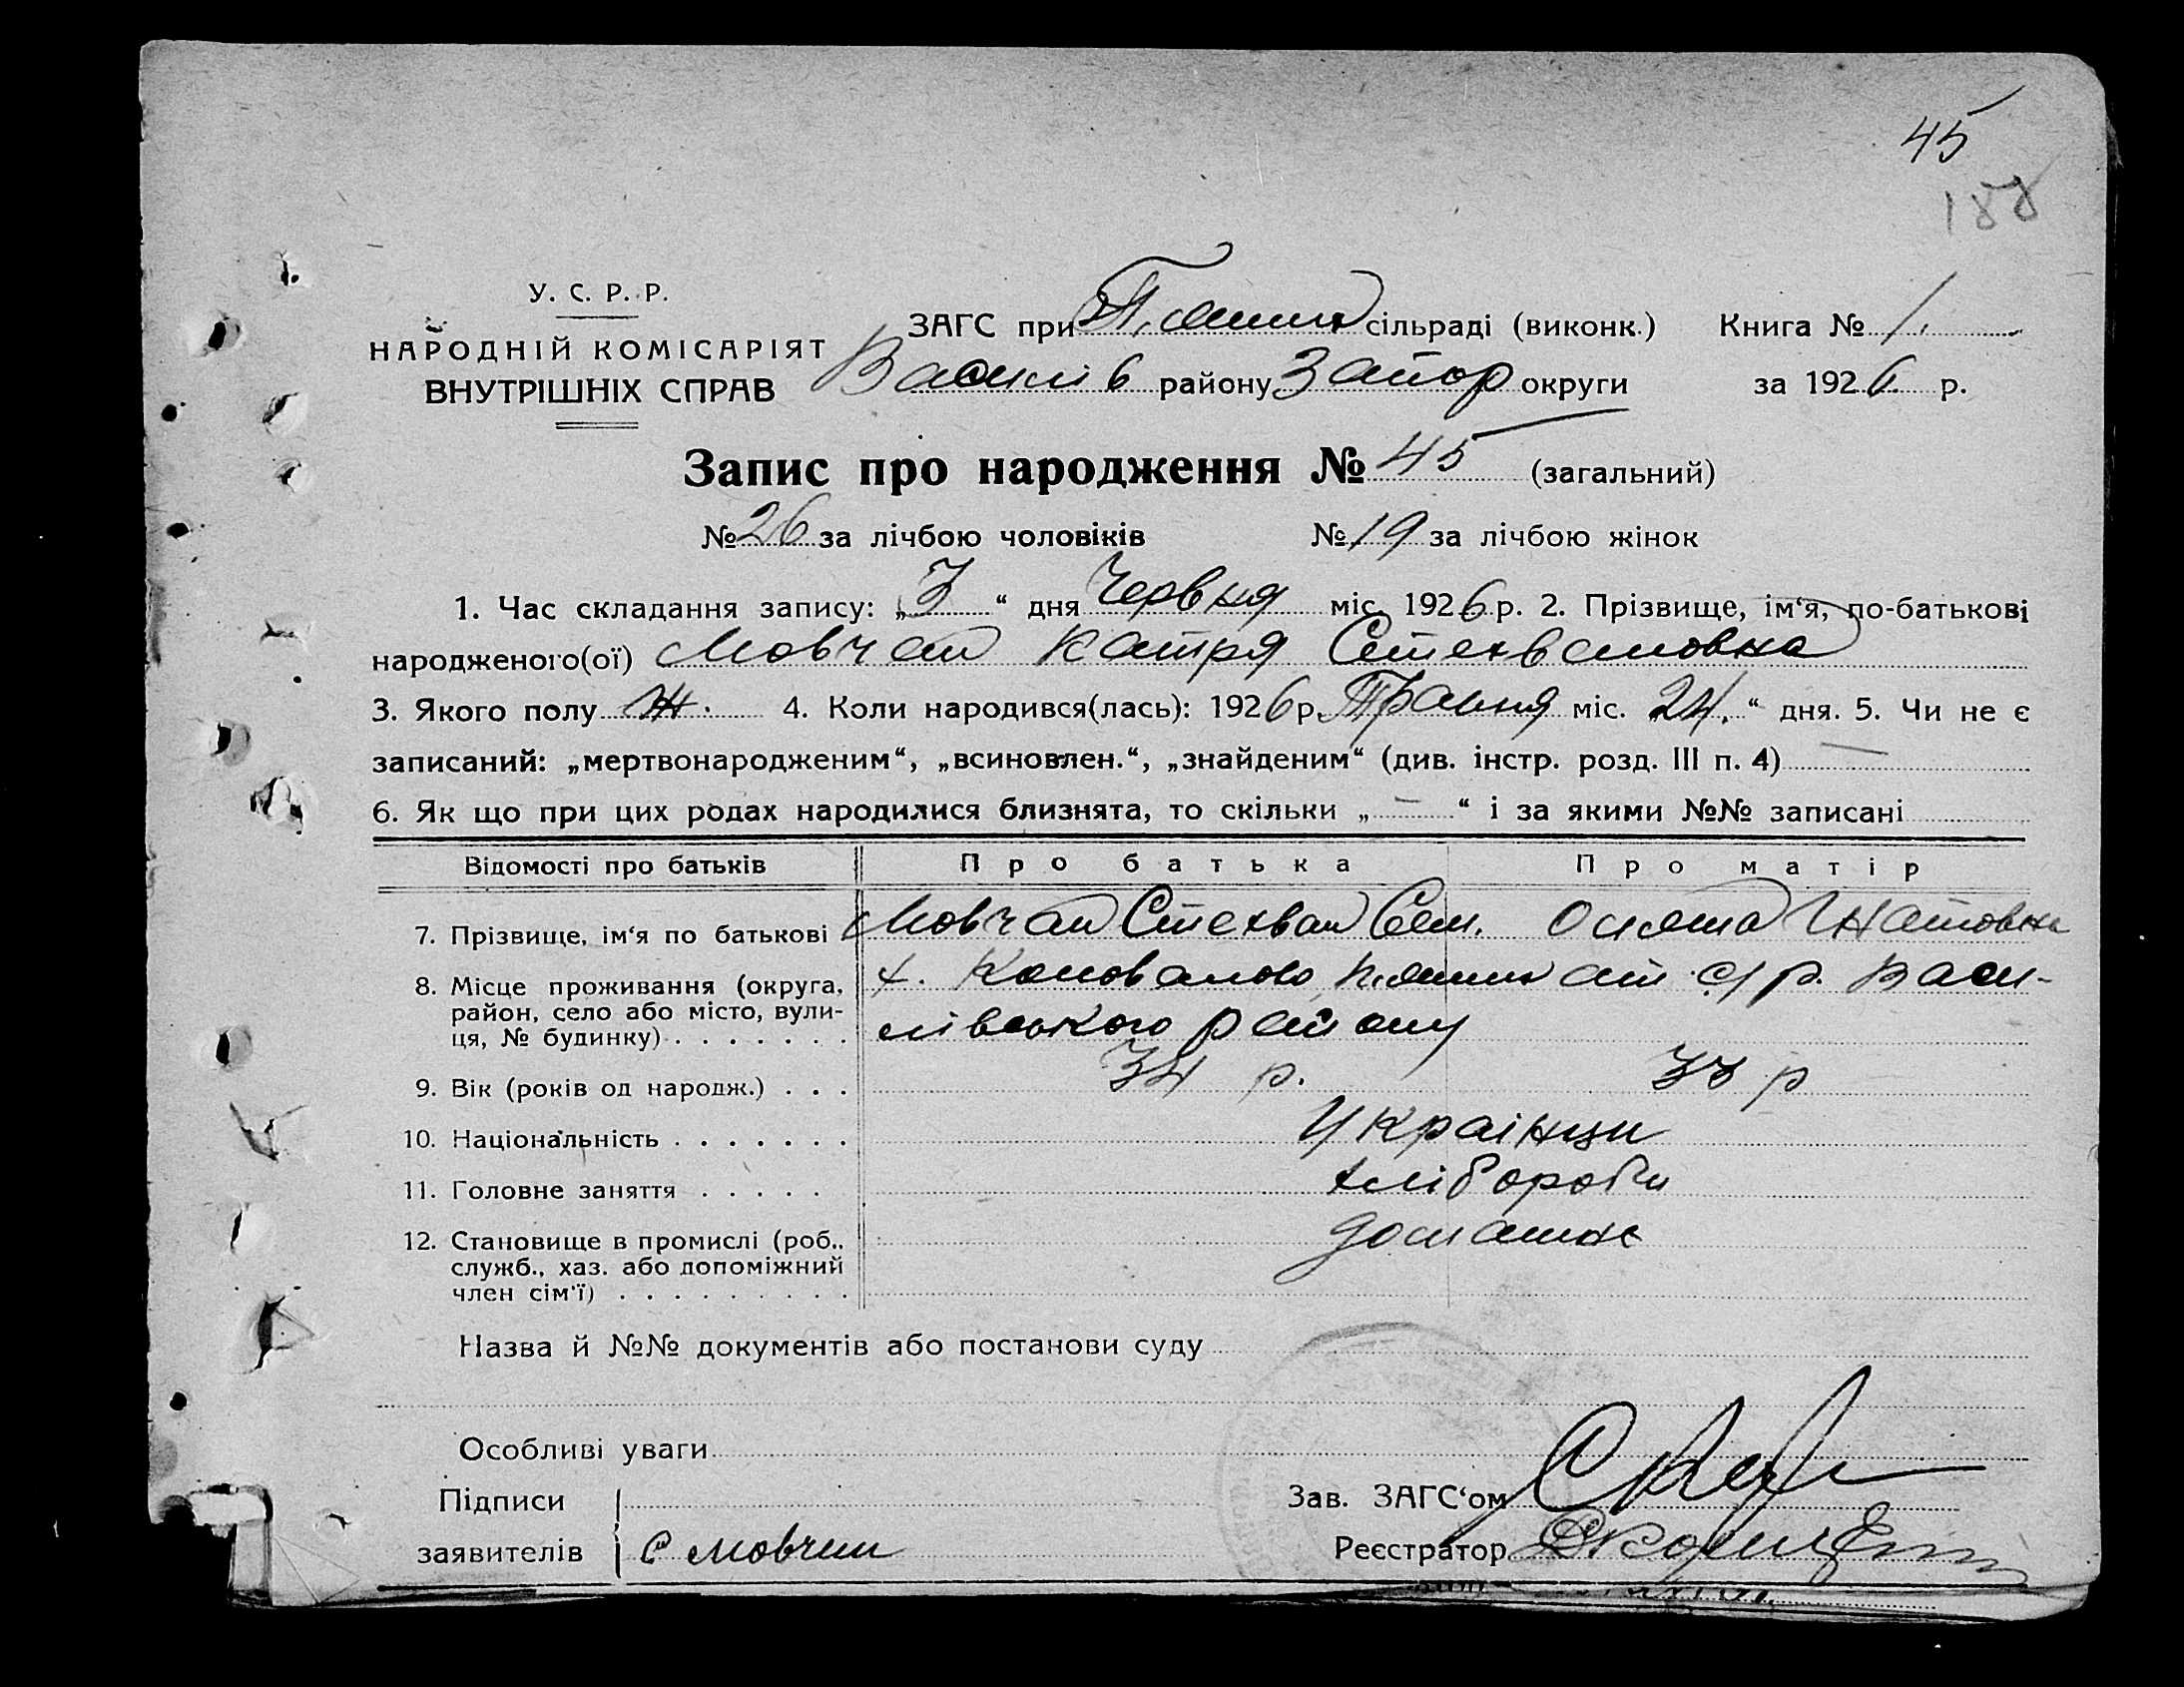 45
188
У. С. Р. Р.
НАРОДНІЙ КОМІСАРІЯТ
ВНУТРІШНІХ СПРАВ
ЗАГС при сільраді (виконк.) Книга № 1.
Василів району Запор округи за 1926 р.
Запис про народження № 45 (загальний)
№ 26 за лічбою чоловіків № 19 за лічбою жінок
1. Час складання запису: „3“ дня Червня міс. 1926 р. 2. Прізвище, ім‘я, по-батькові
народженого(ої) Мовчан Катря Стехвановна
3. Якого полу Ж. 4. Коли народився(лась): 1926 р. Травня міс. „24.“ дня. 5. Чи не є
записаний: „мертвонародженим“, „всиновлен.“, „знайденим“ (див. інстр. розд. III п. 4) —
6. Як що при цих родах народилися близнята, то скільки „—“ і за якими №№ записані
Відомості про батьків Про батька Про матір
7. Прізвище, ім‘я по батькові Мовчан Стехван Сем. Гнатовна
8. Місце проживання (округа, х. Коновалово с/р. Васи-
район, село або місто, вули- лівського району
ця, № будинку) . . . . . . .
9. Вік (років од народж.) . . . 34 р. 33 р
10. Національність . . . . . . . Українци
11. Головне заняття . . . . . хлібороби
12. Становище в промислі (роб.,
служб., хаз. або допоміжний
член сім‘ї) . . . . . . . . .
Назва й №№ документів або постанови суду
Особливі уваги
Підписи Зав. ЗАГС‘ом
заявителів С Мовчан Реєстратор